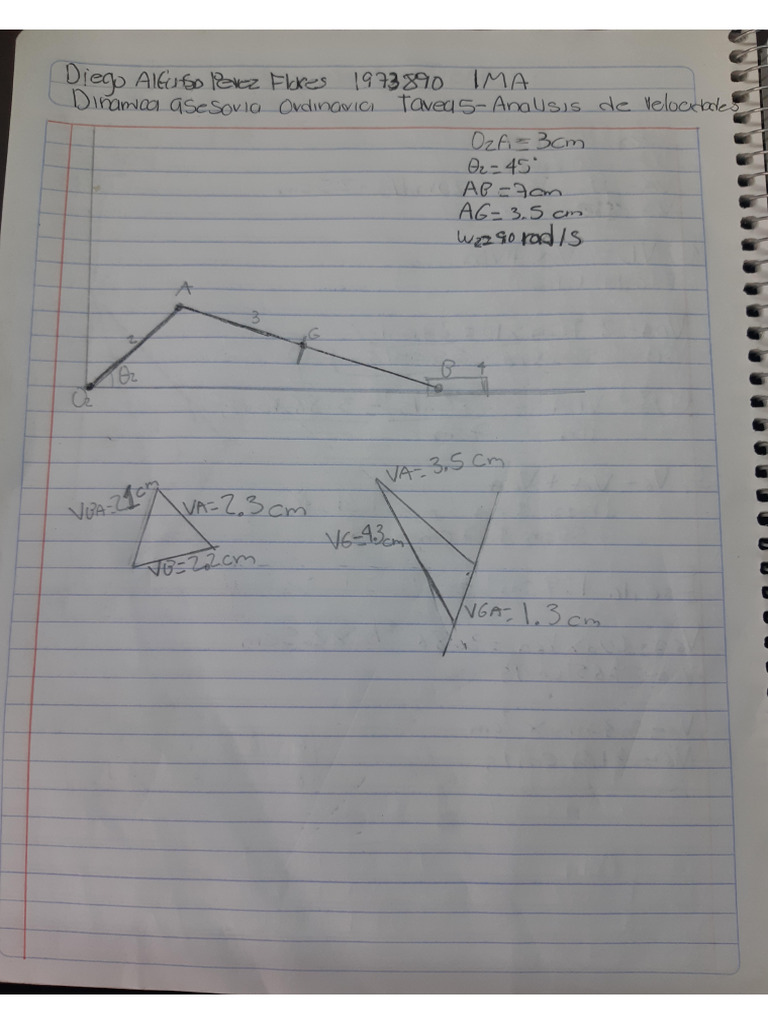 Diego Alfirso Perez Flores 1973890 IMA
Dinamica asesoria ordinaria Tarea 5-Analisis de velocidades
O2A=3cm
θ2=45°
AB=7cm
AG=3.5 cm
W2=90 rad/s
A
3
2
G
θ2
B 4
O2
VBA=2.1cm VA=2.3cm
VB=2.2cm
VA=3.5 cm
VG=4.3cm
VGA=1.3cm